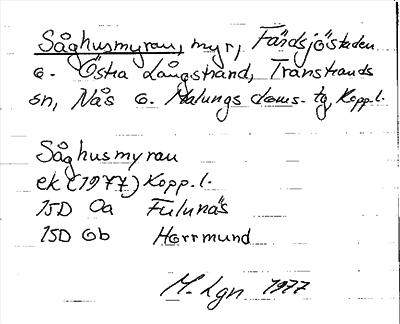 Såghusmyran, myr, Färdsjöstaden
o. Östra Långstrand, Transtrands
sn, Nås o. Malungs doms. tg, Kopp.l.
Såghusmyran
ek (1977) Kopp.l.
15D 0a Fulunäs
15D 0b Horrmund
M. Lgn 1977